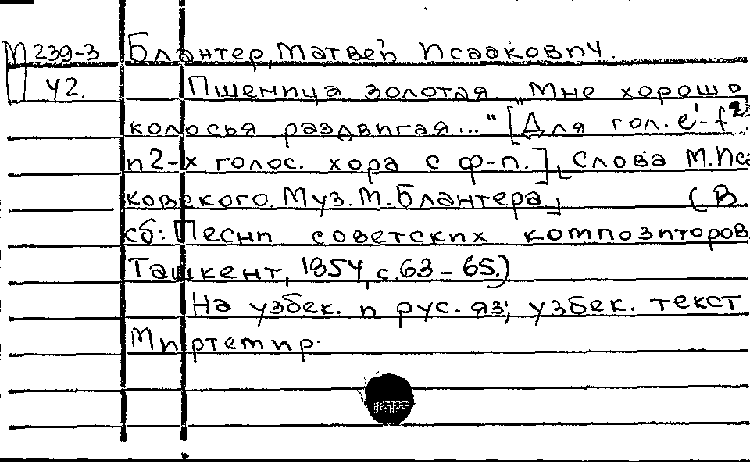 М 239-3 Блантер, Матвей Исаакович.
42. Пшеница золотая „Мне хорошо
колосья раздвигая..." [Для гол. e'-f²
и 2-х голос. хора с ф-п.], Слова М.Иса
ковского. Муз. М. Блантера, (В
сб: Песни советских композиторов
Ташкент, 1954, с. 63-65.)
На узбек. и рус. яз; узбек. текст
Миртемир.